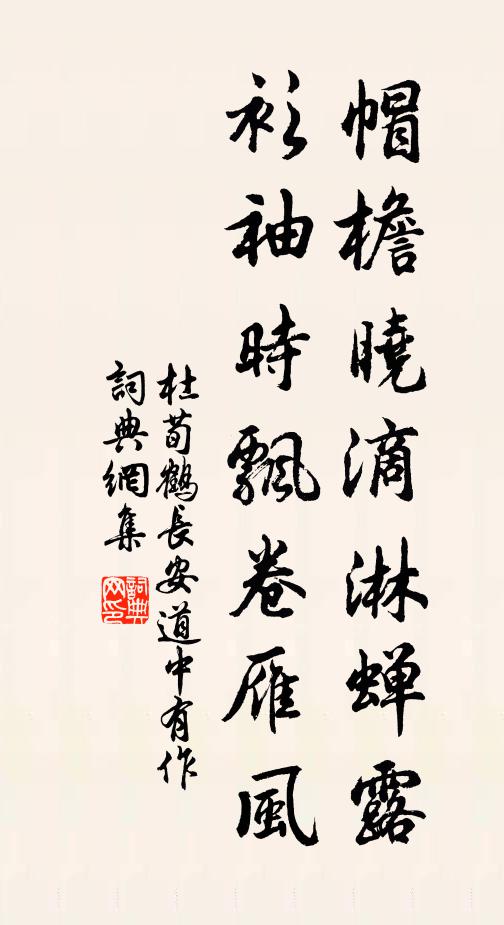 帽檐曉滴淋蝉露
衫袖時飄卷雁風
杜荀鶴長安道中有作
詞典網集
詞典网印